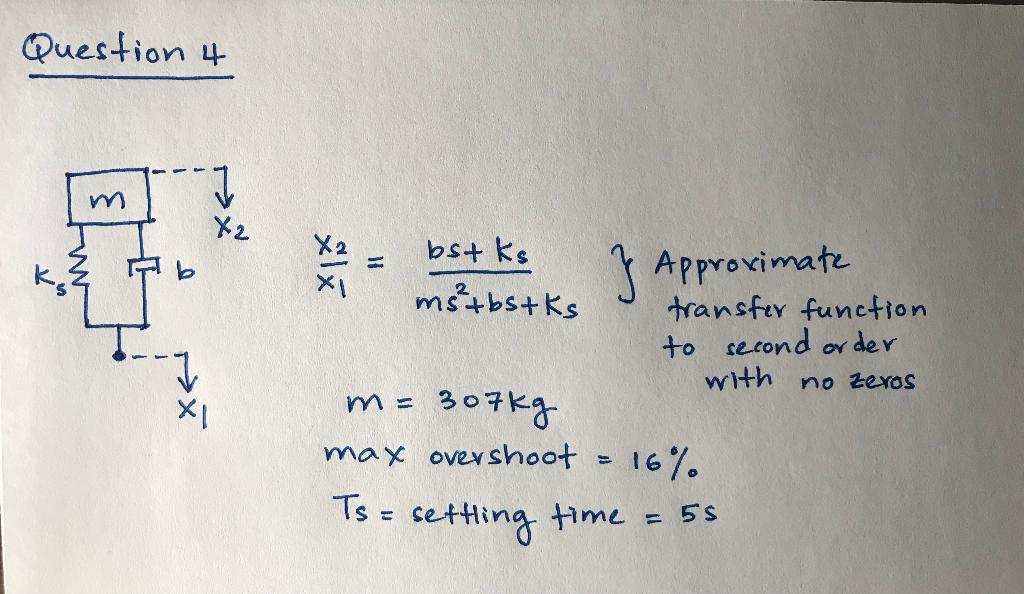 Question 4
m
x2
Ks
b
x1
x2/x1 = bs+Ks/ms²+bs+Ks
} Approximate
transfer function
to second order
with no zeros
m = 307kg
max overshoot = 16%
Ts = settling time = 5s